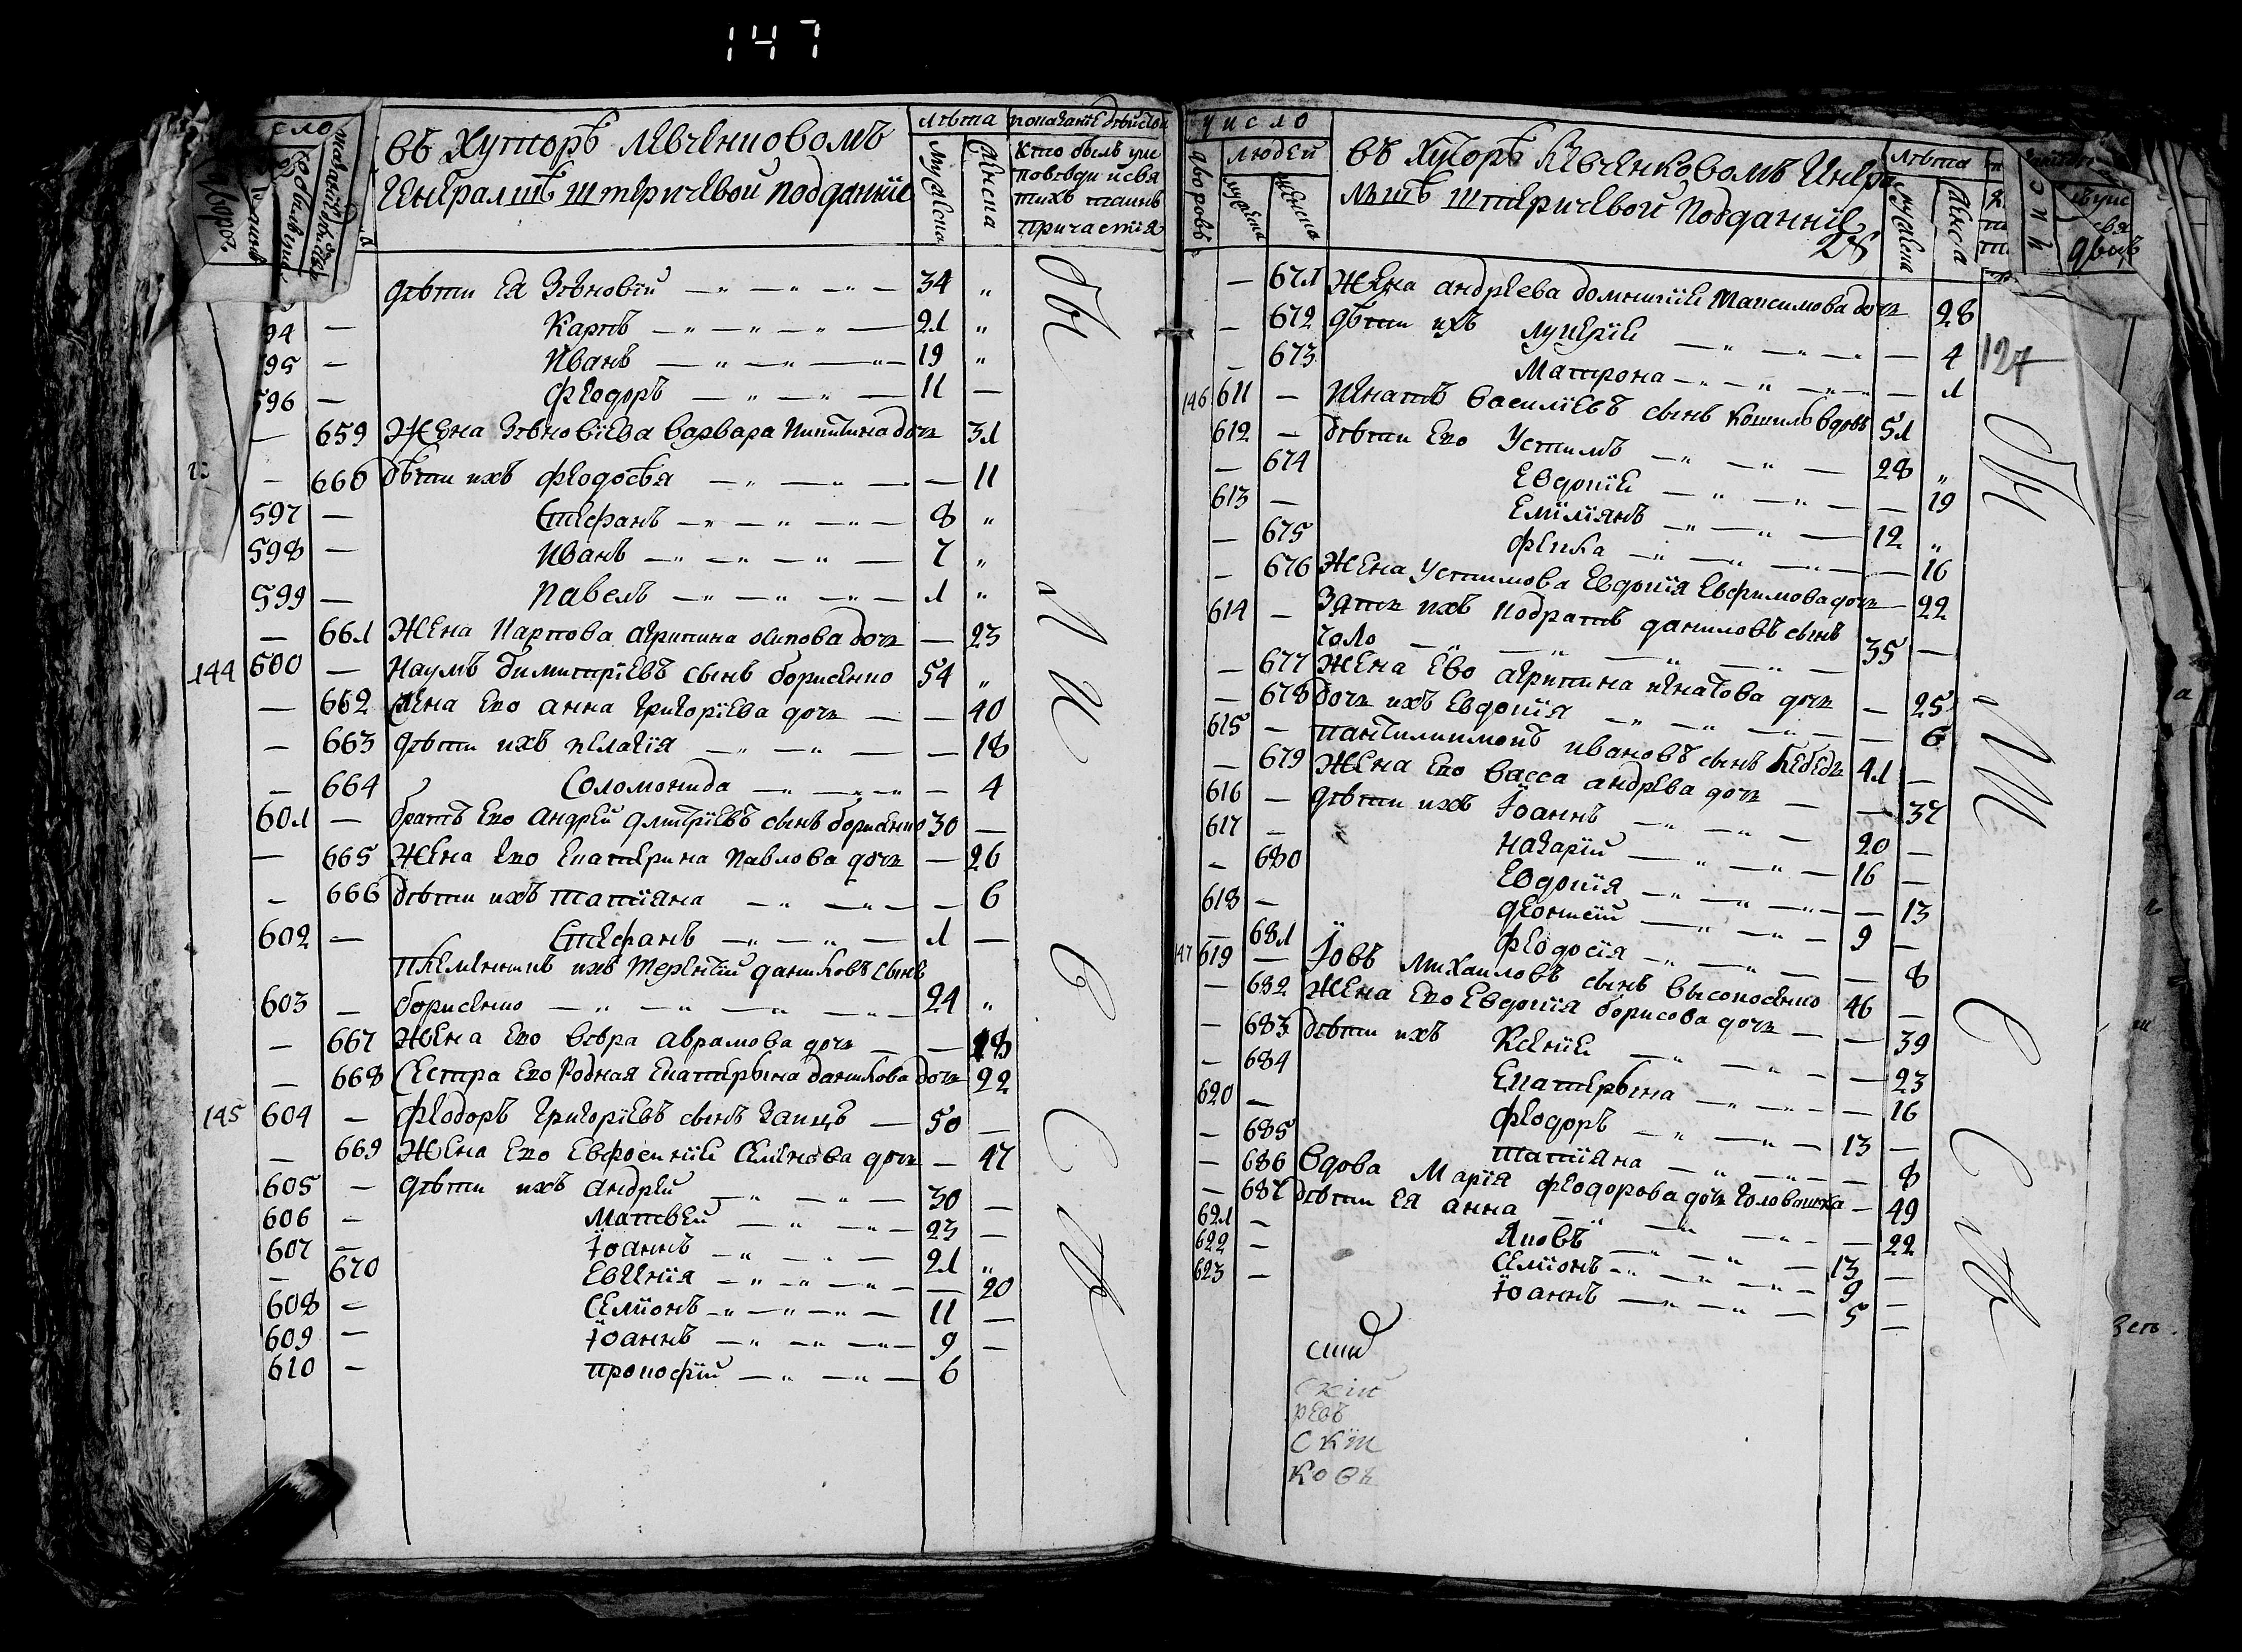 147
въ Хуторѣ Левченковомъ
Генералшѣ Штеричевой подданніе
лѣта
мужеска
женска
показаніе дѣйства
кто былъ у ис
повѣди и свя
тихъ таинъ
причастія
дѣти ея Зѣновій 34 "
594 — Карпъ 21 "
595 — Иванъ 19 "
596 — Феодоръ 11 —
— 659 Жена Зѣновіева Варвара Никитина дочь 31
— 660 дѣти ихъ Феодосѣя — 11
597 — Стефанъ 8 "
598 — Иванъ 7 "
599 — Павелъ 1 "
— 661 Жена Карпова Агрипина Осипова дочь — 23
144 600 — Наумъ Димитріевъ сынъ Борисенко 54 "
— 662 Жена его Анна Григоріева дочь — 40
— 663 дѣти ихъ Пелагія — 18
— 664 Соломонида — 4
601 — братъ его Андрей Дмитріевъ сынъ Борисенко 30 —
— 665 Жена его Екатерина Павлова дочь — 26
— 666 дѣти ихъ Татіяна — 6
602 — Стефанъ 1 —
племенникъ ихъ Терентій Даниловъ сынъ
603 — Борисенко 24 "
— 667 Жена его Вѣра Аврамова дочь — 18
— 668 Сестра его родная Екатерына Данилова дочь 22
145 604 — Феодоръ Григоріевъ сынъ Заицъ 50 —
— 669 Жена его Евфосиніи Семенова дочь — 47
605 — дѣти ихъ Андрей 30 —
606 — Матвей 23 —
607 — Іоаннъ 21 "
— 670 Евгенія — 20
608 — Семіонъ 11 —
609 — Іоаннъ 9 —
610 — Прокофій 6
Число
дворовъ
людей
мужеска
женска
въ Хуторѣ Левченковомъ Генера
лшѣ Штеричевой подданніе
лѣта
мужеска
женска
— 671 Жена Андреева Домникіи Максимова дочь 28
— 672 дѣти ихъ Лукеріи — 4
127
— 673 Матрона — 1
146 611 — Игнатъ Василіевъ сынъ Кошиль вдовъ 51
612 — дѣти его Устимъ 28 "
— 674 Евдокіи — 19
613 — Еміліянъ 12 "
— 675 Фенка — 16
— 676 Жена Устимова Евдокія Евфимова дочь — 22
614 — Зять ихъ Кодратъ Даниловъ сынъ
Голо 35 —
— 677 Жена его Агрипина Игнатова дочь — 25
— 678 дочь ихъ Евдокія — 6
615 — Пантилиимонъ Ивановъ сынъ Бебедь 41 —
— 679 Жена его Васса Андрева дочь — 37
616 — дѣти ихъ Іоаннъ 20 —
617 — Назарій 16 —
— 680 Евдокія — 13
618 — Феоктей 9 —
— 681 Феодосія — 8
147 619 — Іовъ Михаиловъ сынъ Высокосенко 46 —
— 682 Жена его Евдокія Борисова дочь — 39
— 683 дѣти ихъ Ксеніи — 23
— 684 Екатерына — 16
620 — Феодоръ 13 —
— 685 Татіяна — 8
— 686 вдова Марія Феодорова дочь Головашка — 49
— 687 дѣти ея Анна — 22
621 — Яковъ 13 —
622 — Семіонъ 9 —
623 — Іоаннъ 5 —
скій
ревъ
скій
ковъ